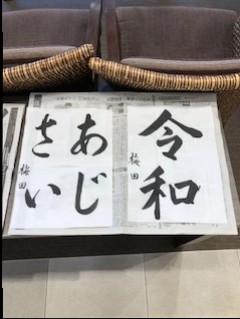 令和
梅田
あじ
さい
梅田